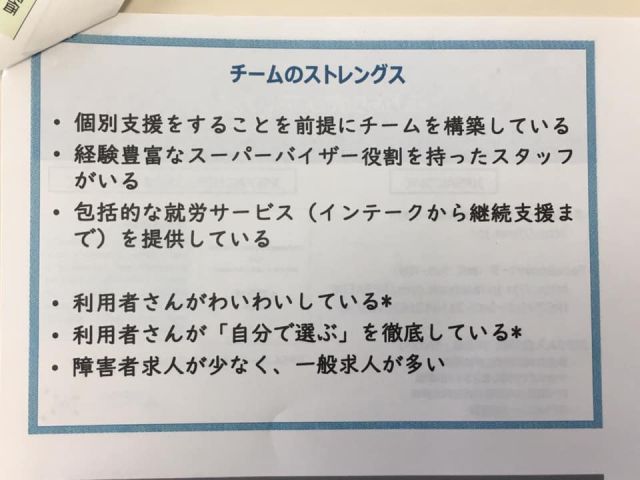 チームのストレングス
• 個別支援をすることを前提にチームを構築している
• 経験豊富なスーパーバイザー役割を持ったスタッフ
がいる
• 包括的な就労サービス（インテークから継続支援ま
で）を提供している
• 利用者さんがわいわいしている*
• 利用者さんが「自分で選ぶ」を徹底している*
• 障害者求人が少なく、一般求人が多い